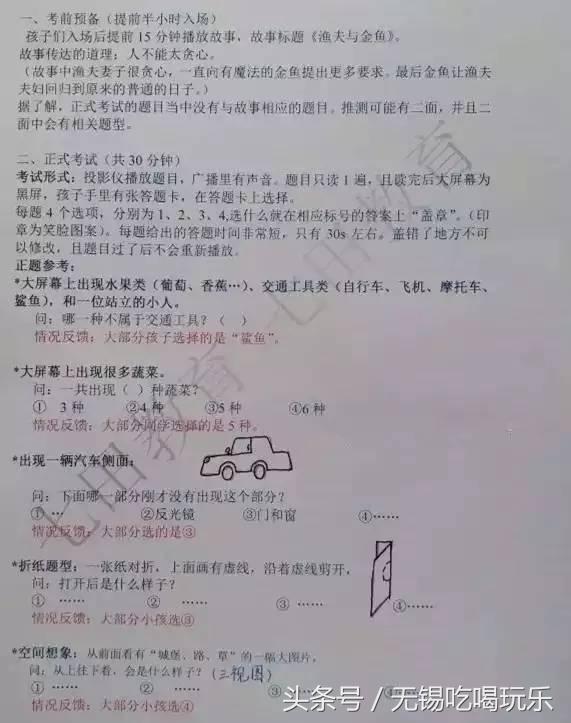 一、考前预备（提前半小时入场）
孩子们入场后提前 15 分钟播放故事，故事标题《渔夫与金鱼》。
故事传达的道理：人不能太贪心。
（故事中渔夫妻子很贪心，一直向有魔法的金鱼提出更多要求。最后金鱼让渔夫
夫妇回归到原来的普通的日子。）
据了解，正式考试的题目当中没有与故事相应的题目。推测可能有二面，并且二
面中会有相关题型。
二、正式考试（共 30 分钟）
考试形式：投影仪播放题目，广播里有声音。题目只读 1 遍，且读完后大屏幕为
黑屏，孩子手里有张答题卡，在答题卡上选择。
每题 4 个选项，分别为 1、2、3、4,选什么就在相应标号的答案上“盖章”。（印
章为笑脸图案）。每题给出的答题时间非常短，只有 30s 左右。盖错了地方不可
以修改，且题目过了后不会重新播放。
正题参考：
*大屏幕上出现水果类（葡萄、香蕉…）、交通工具类（自行车、飞机、摩托车、
鲨鱼），和一位站立的小人。
问：哪一种不属于交通工具？（ ）
情况反馈：大部分孩子选择的是“鲨鱼”。
*大屏幕上出现很多蔬菜。
问：一共出现（ ）种蔬菜？
① 3 种 ②4 种 ③5 种 ④6 种
情况反馈：大部分同学选择的是 5 种。
*出现一辆汽车侧面：
问：下面哪一部分刚才没有出现这个部分？
① … ②反光镜 ③门和窗 ④……
情况反馈：大部分选的是③
*折纸题型：一张纸对折，上面画有虚线，沿着虚线剪开，
问：打开后是什么样子？
① …… ② …… ③ …… ④……
情况反馈：大部分小孩选③
*空间想象：从前面看有“城堡、路、草”的一幅大图片，
问：从上往下看，会是什么样子？（三视图）
① …… ② …… ③ …… ④……
情况反馈：大部分小孩选④
七田教育 七田教育
头条号 / 无锡吃喝玩乐